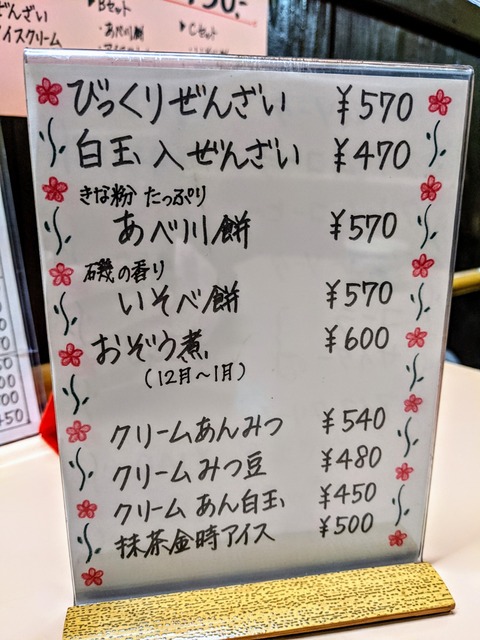 Bセット
ぜんざい
・あべ川餅
Cセット
アイスクリーム
びっくりぜんざい ¥570
白玉入ぜんざい ¥470
きな粉 たっぷり
あべ川餅 ¥570
磯の香り
いそべ餅 ¥570
おぞう煮 ¥600
(12月~1月)
クリームあんみつ ¥540
クリームみつ豆 ¥480
クリームあん白玉 ¥450
抹茶金時アイス ¥500